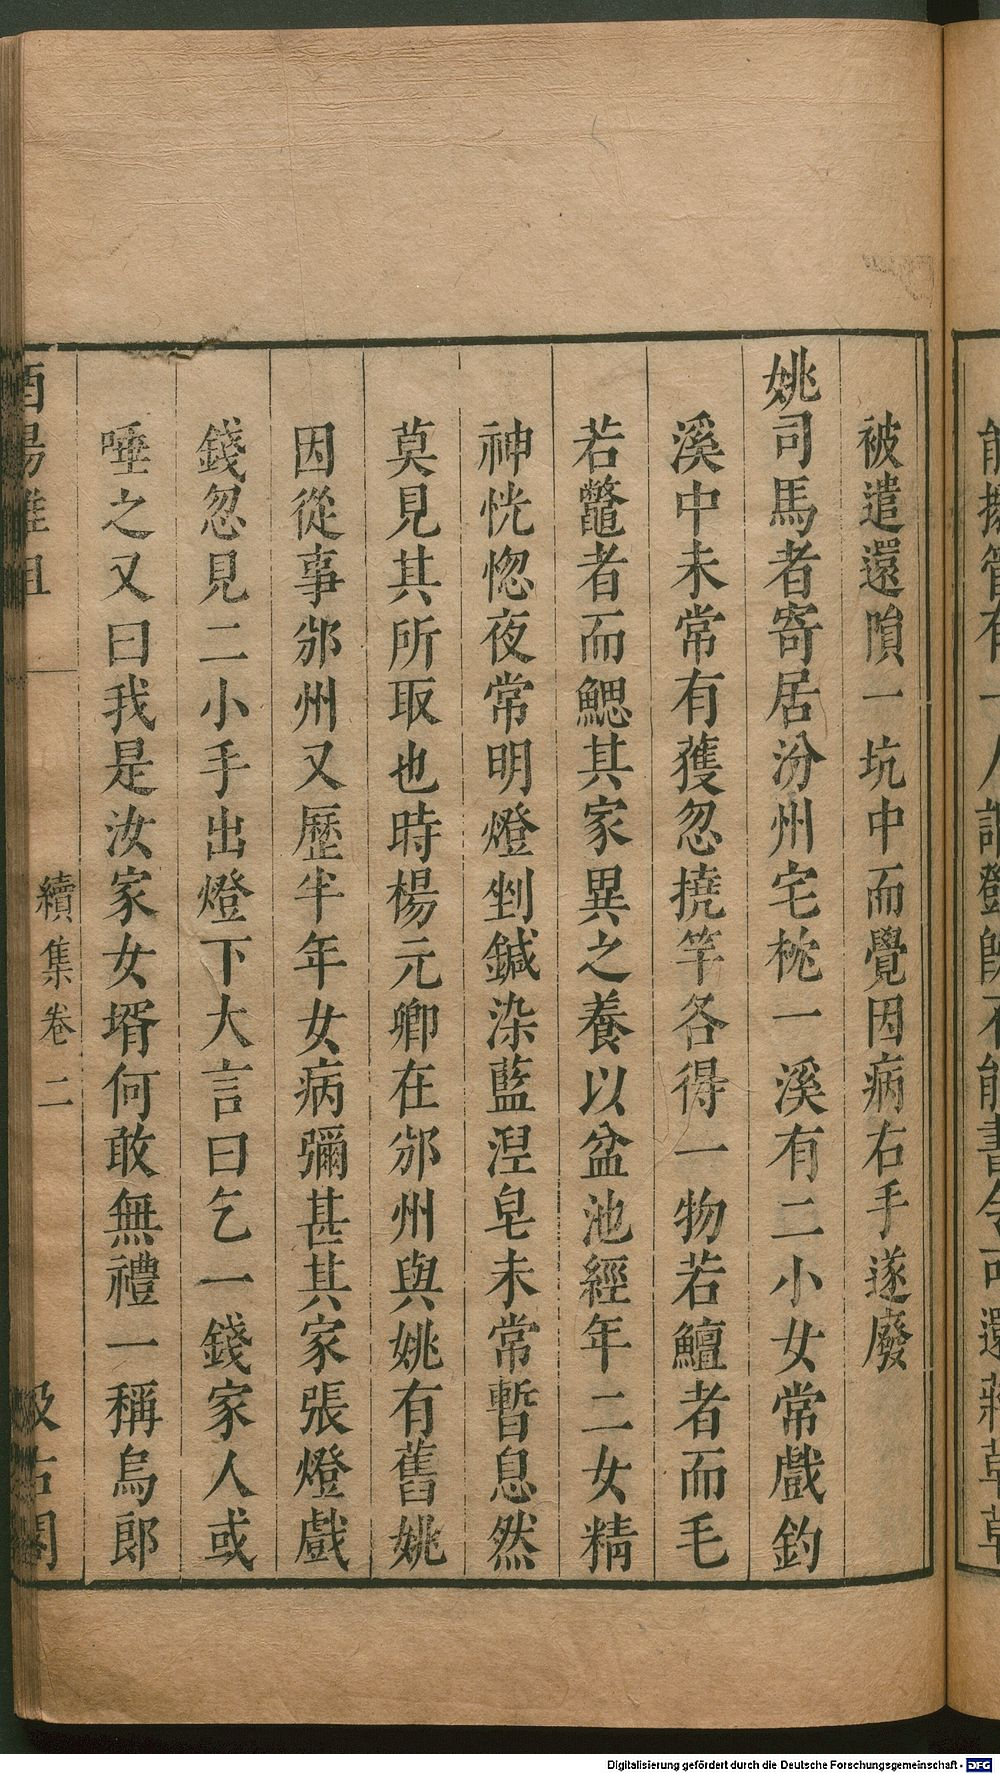 被遣還隕一坑中而覺因病右手遂廢
姚司馬者寄居汾州宅枕一溪有二小女常戲釣
溪中未常有獲忽撓竿各得一物若鱣者而毛
若鼈者而鰓其家異之養以盆池經年二女精
神恍惚夜常明燈剉鍼染藍涅皂未常暫息然
莫見其所取也時楊元卿在邠州與姚有舊姚
因從事邠州又歷半年女病彌甚其家張燈戲
錢忽見二小手出燈下大言曰乞一錢家人或
唾之又曰我是汝家女壻何敢無禮一稱烏郎
續集卷二
Digitalisierung gefördert durch die Deutsche Forschungsgemeinschaft - DFG